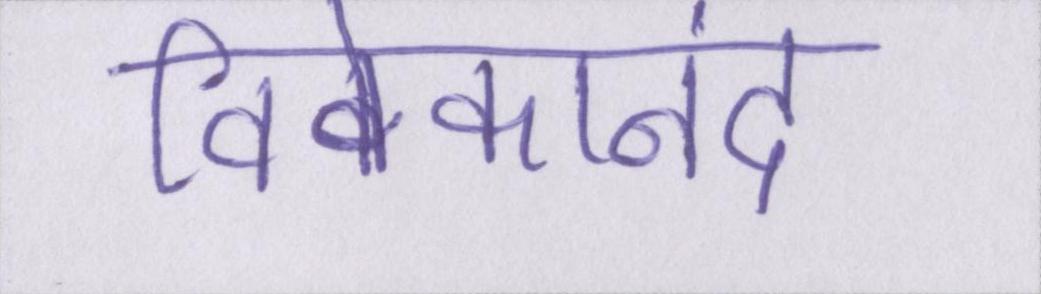 विवेकानंद